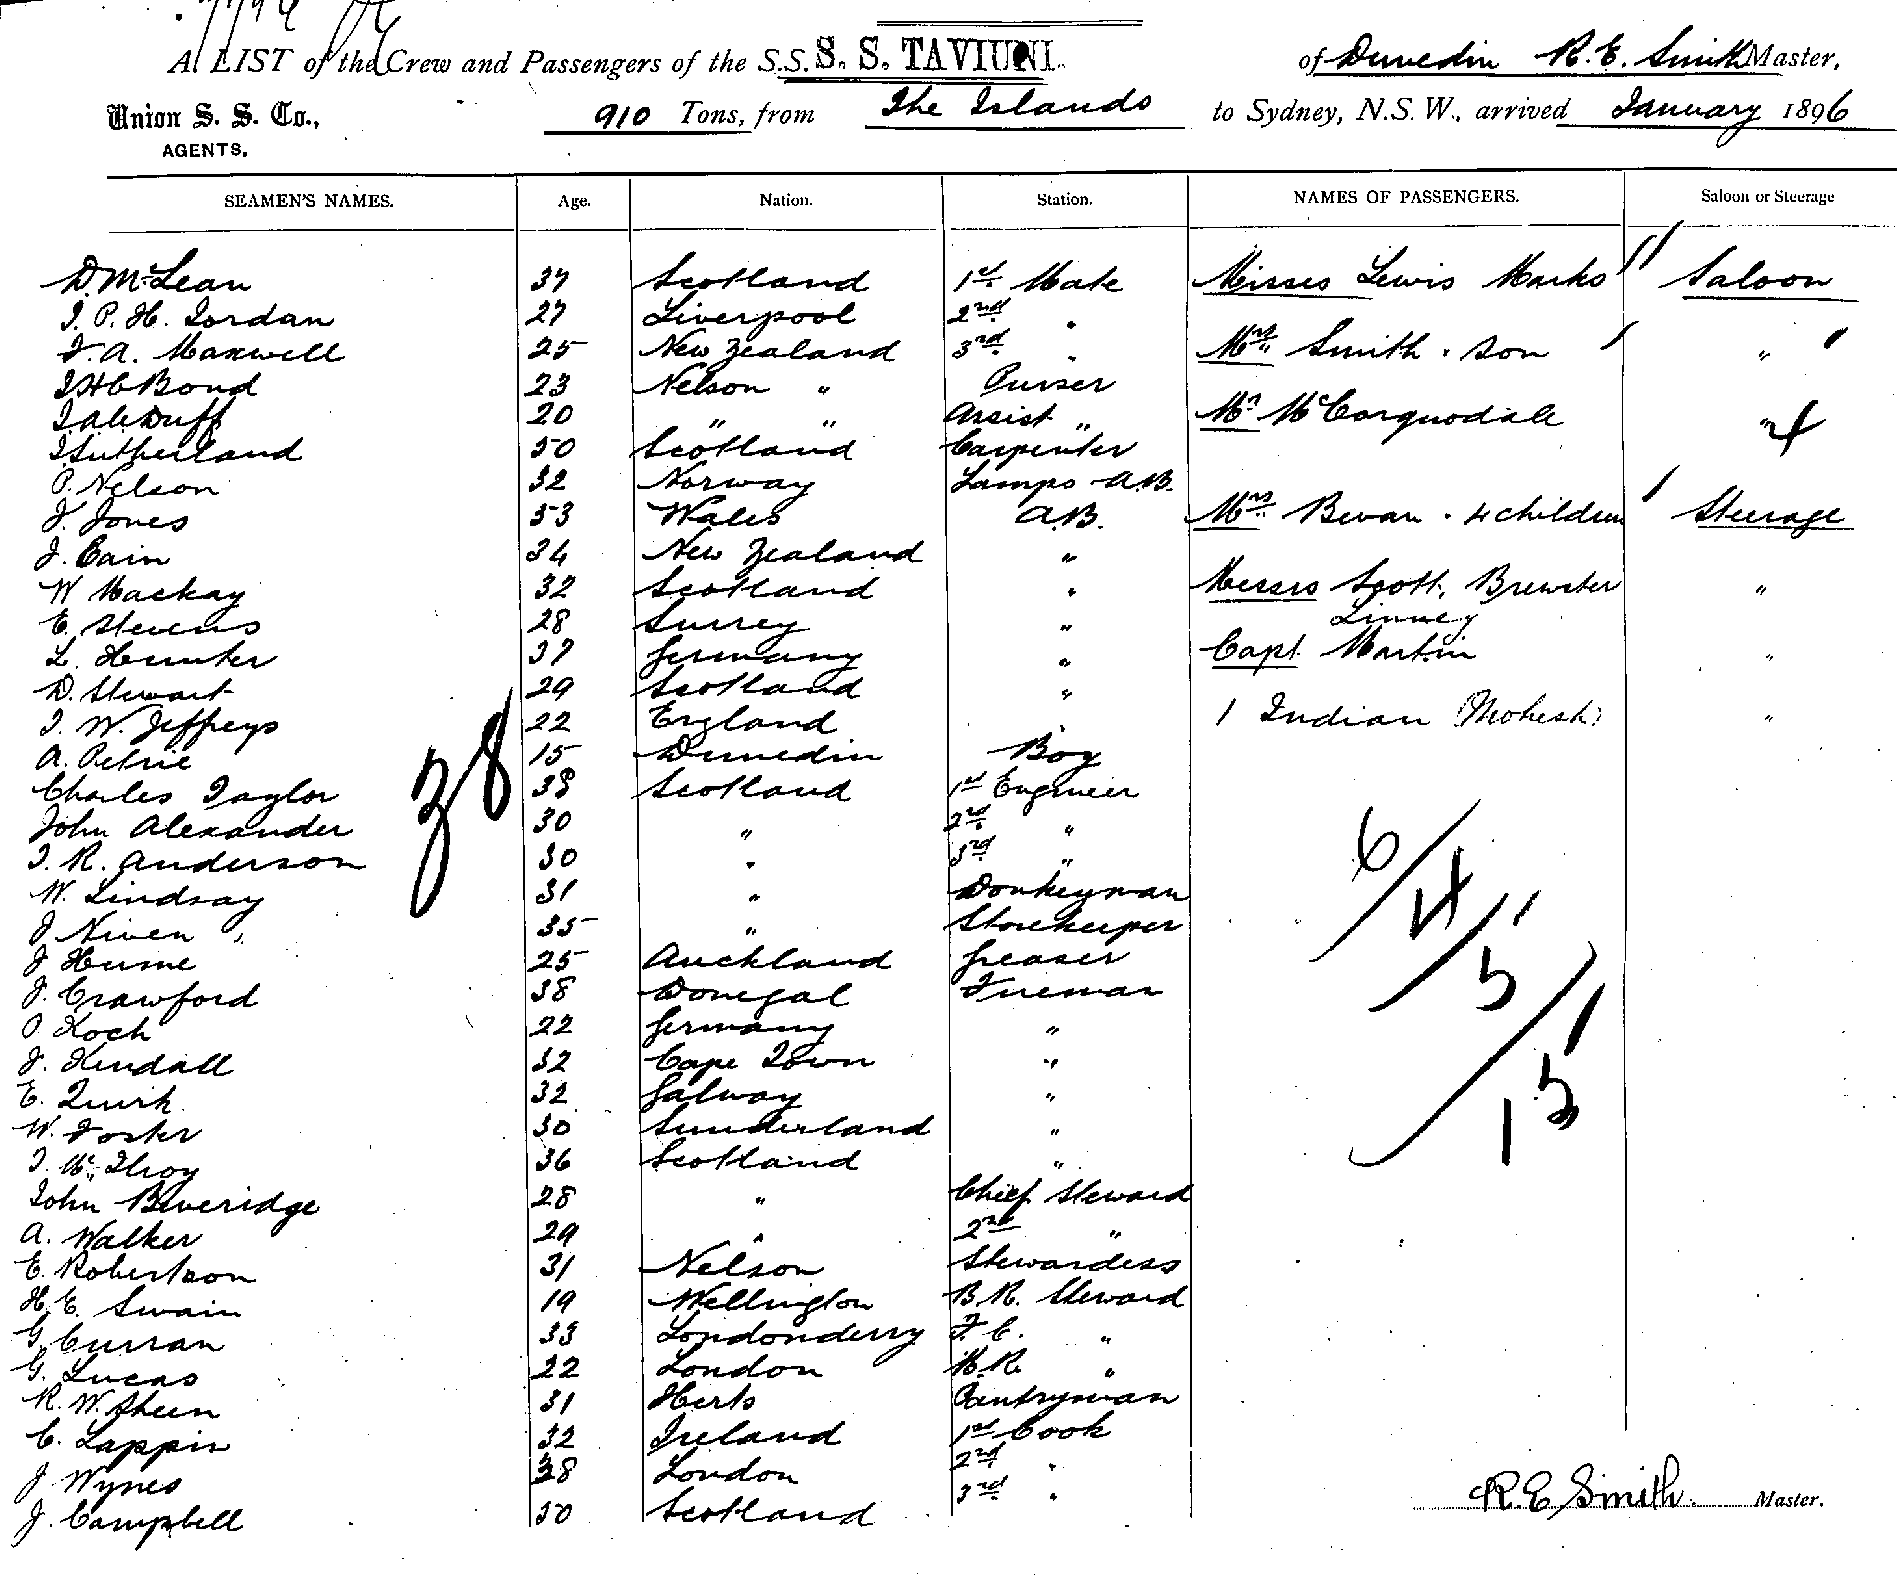 A LIST of the Crew and Passengers of the S.S. S. S. TAVIUNI. of Dunedin R. E. Smith Master,
Union S. S. Co., 910 Tons, from The Islands to Sydney, N.S.W., arrived January 1896
AGENTS.
SEAMEN'S NAMES. Age. Nation. Station. NAMES OF PASSENGERS. Saloon or Steerage
D. McLean 37 Scotland 1st Mate Misses Lewis Marks Saloon
J. P. H. Jordan 27 Liverpool 2nd "
J. A. Maxwell 25 New Zealand 3rd " Mrs Smith . son "
J H C Bond 23 Nelson " Purser
Duff 20 " " Assist " Mr McCorquodale " 4
J Sutherland 50 Scotland Carpenter
P. Nelson 32 Norway Lamps A.B.
J. Jones 53 Wales A.B. Mrs Bevan . 4 children Steerage
J. Cain 34 New Zealand "
W Mackay 32 Scotland " Messrs Scott, Brewster "
E. Stevens 28 Surrey " Linney
L. Hunter 37 Germany " Capt Martin "
D. Stewart 29 Scotland "
J. W. Jeffreys 22 England " 1 Indian (Mohesh) "
A. Petrie 15 Dunedin Boy
38
Charles Taylor 38 Scotland 1st Engineer
John Alexander 30 " 2nd "
J. R. Anderson 30 " 3rd "
6
W. Lindsay 31 " Donkeyman
4
J Niven 35 " Storekeeper
J Hume 25 Auckland Greaser
5
J. Crawford 38 Donegal Fireman
P Koch 22 Germany "
J. Kendall 32 Cape Town "
E. Quirk 32 Galway "
15
W. Foster 30 Sunderland "
J. McIlroy 36 Scotland "
John Beveridge 28 " Chief Steward
A. Walker 29 " 2nd "
E. Robertson 31 Nelson Stewardess
H. E. Swain 19 Wellington B. R. Steward
G Curran 33 Londonderry F. C. "
G. Lucas 22 London "
R. W. Sheen 31 Herts Pantryman
C. Lappin 32 Ireland 1st Cook
J. Wynes 38 London 2nd "
J. Campbell 50 Scotland 3rd "
R. E. Smith. Master.